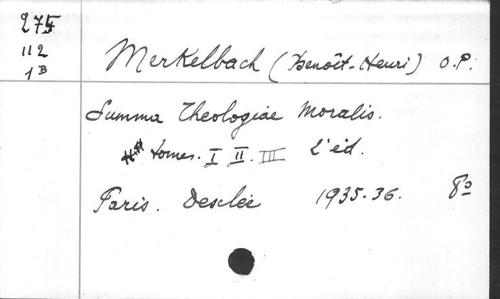 274
112
1B
Merkelbach (Benoît-Henri) O.P.
Summa Theologiae Moralis.
tomes. I II. III 2e éd.
Paris. Desclée 1935-36. 8o